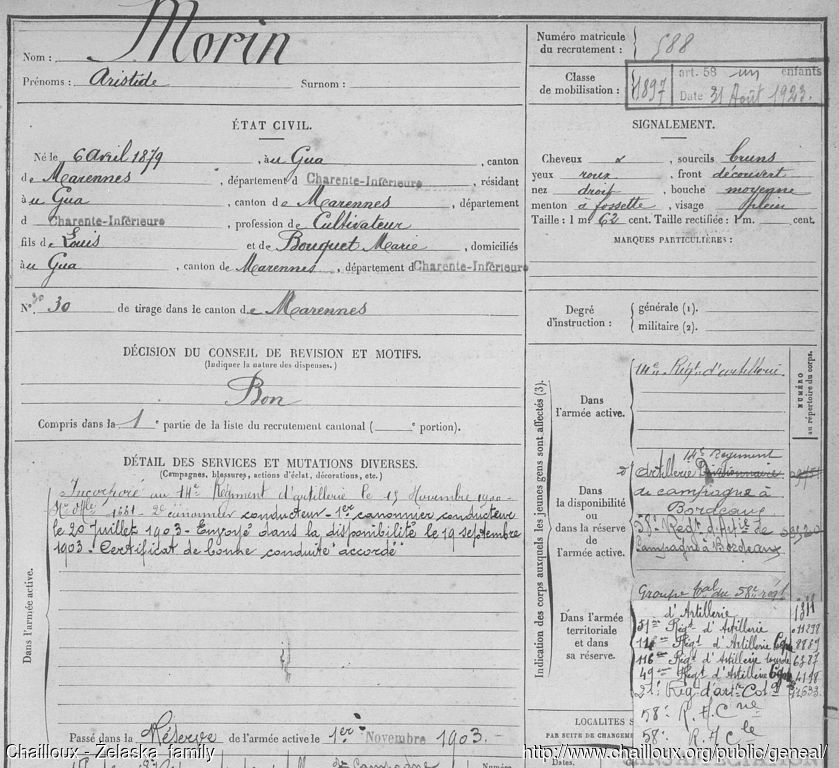 Nom : Morin
Prénoms : Aristide Surnom :
Numéro matricule du recrutement : 588
Classe de mobilisation : 1897
art. 58 un enfants
Date 31 Août 1923.
ÉTAT CIVIL.
Né le 6 avril 1879, à u Gua, canton
de Marennes, département d Charente-Inférieure, résidant
à u Gua, canton de Marennes, département
d Charente-Inférieure, profession de Cultivateur
fils de Louis et de Bouquet Marie, domiciliés
à u Gua, canton de Marennes, département d Charente-Inférieure
N° 30 de tirage dans le canton de Marennes
SIGNALEMENT.
Cheveux sourcils bruns
yeux roux, front découvert
nez droit, bouche moyenne
menton à fossette, visage plein
Taille : 1 m 62 cent. Taille rectifiée : 1 m. cent.
MARQUES PARTICULIÈRES :
Degré d'instruction : générale (1).
militaire (2).
DÉCISION DU CONSEIL DE REVISION ET MOTIFS.
(Indiquer la nature des dispenses.)
Bon
Compris dans la 1e partie de la liste du recrutement cantonal ( e portion).
DÉTAIL DES SERVICES ET MUTATIONS DIVERSES.
(Campagnes, blessures, actions d'éclat, décorations, etc.)
Dans l'armée active.
Incorporé au 14e Régiment d'artillerie le 15 Novembre 1900
2e canonnier conducteur - 1er canonnier conducteur
le 20 Juillet 1903 - Envoyé dans la disponibilité le 19 septembre
1903 - Certificat de bonne conduite accordé
Passé dans la Réserve de l'armée active le 1er Novembre 1903.
Indication des corps auxquels les jeunes gens sont affectés (3).
NUMÉRO au répertoire du corps.
Dans l'armée active.
14e Régt d'artillerie
Dans la disponibilité ou dans la réserve de l'armée active.
14e Régiment
d'Artillerie Divisionnaire
de campagne à
Bordeaux
58e Régt d'Artie de
Campagne à Bordeaux
Dans l'armée territoriale et dans sa réserve.
Groupe tal du 58e régt
d'Artillerie 1311
51me Régt d'Artillerie
Régt d'Artillerie 8889
116me Régt d'Artillerie lourde 6787
49me Régt d'Artillerie 4198
21e Rég. d'art. Col.
58e R.A.C
58e R.A.C
LOCALITES S
PAR SUITE DE CHANGEME
Dates.
Chailloux - Zelaska family
http://www.chailloux.org/public/geneal/